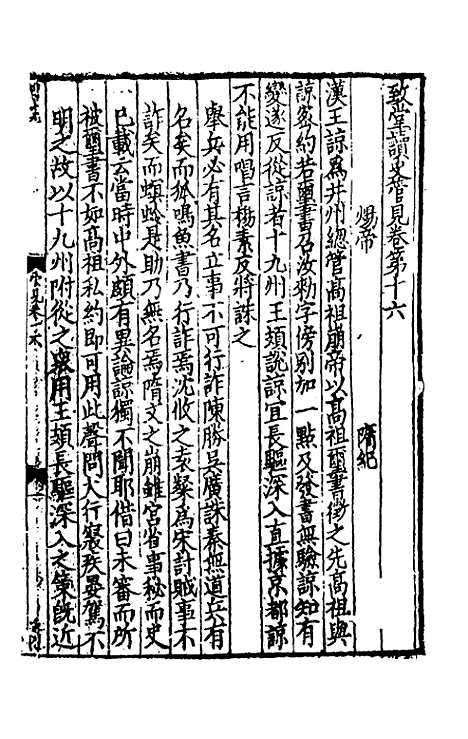 致堂讀史管見卷第十六
煬帝 隋紀
漢王諒爲并州總管高祖崩帝以高祖璽書徵之先高祖與
諒密約若璽書召汝勑字傍別加一點及發書無驗諒知有
變遂反從諒者十九州王頍說諒宜長驅深入直據京都諒
不能用唱言楊素反將誅之
舉兵必有其名立事不可行詐陳勝吳廣誅秦無道兵有
名矣而狐鳴魚書乃行詐焉沈攸之袁粲爲宋討賊事不
詐矣而蜈蚣是助乃無名焉隋文之崩雖宮省事秘而史
已載云當時中外頗有異論諒獨不聞耶借曰未審而所
被璽書不如高祖私約即可用此聲問大行寢疾晏駕不
明之故以十九州附從之衆用王頍長驅深入之策旣近